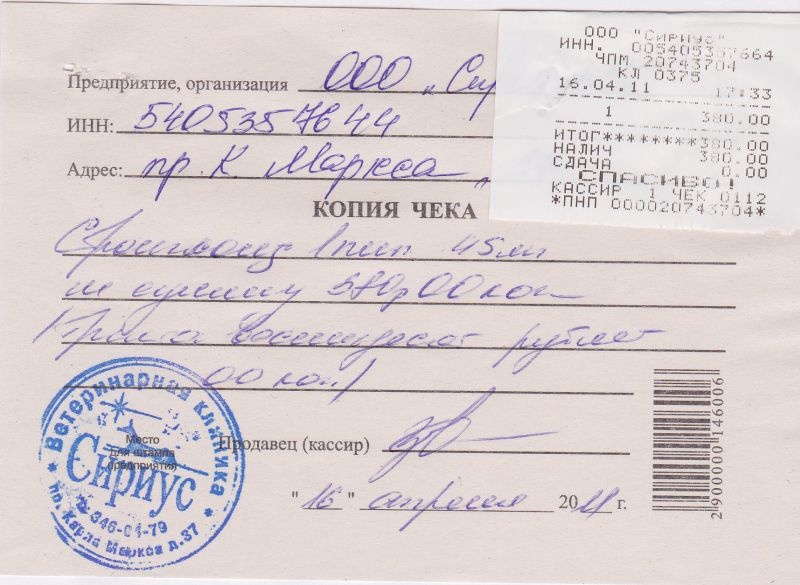 ООО "Сириус"
ИНН. 005405357664
ЧПМ 20743704
КЛ 0375
16.04.11 17:33
1 380.00
ИТОГ********380.00
НАЛИЧ 380.00
СДАЧА 0.00
СПАСИБО!
КАССИР 1 ЧЕК 0112
*ПНП 000020743704*
Предприятие, организация ООО „Сир
ИНН: 5405357644
Адрес: пр. К Маркса
КОПИЯ ЧЕКА
1 пип 45мл
на сумму 380р00коп
(Триста восемьдесят рублей
00 коп)
Продавец (кассир)
"16" апреля 2011 г.
* Ветеринарная клиника *
Место
для штампа
предприятия
Сириус
346-01-79
пр. Карла Маркса д.37
2 900000 146006